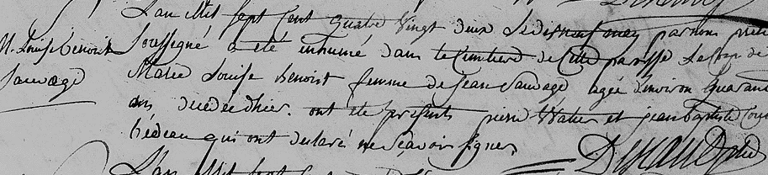 L'an mil sept cent quatre vingt deux le dix neuf may par nous prêtre
M. Louise benoist soussigné a été inhumé dans le cimetiere de cette paroisse le corps de
sauvagé Marie Louise Benoist femme de jean Sauvagé agée d'environ quarante
ans decedée d'hier. ont été présents pierre Watier et jean Baptiste
bedeau qui ont declaré ne sçavoir signer
L'an mil sept